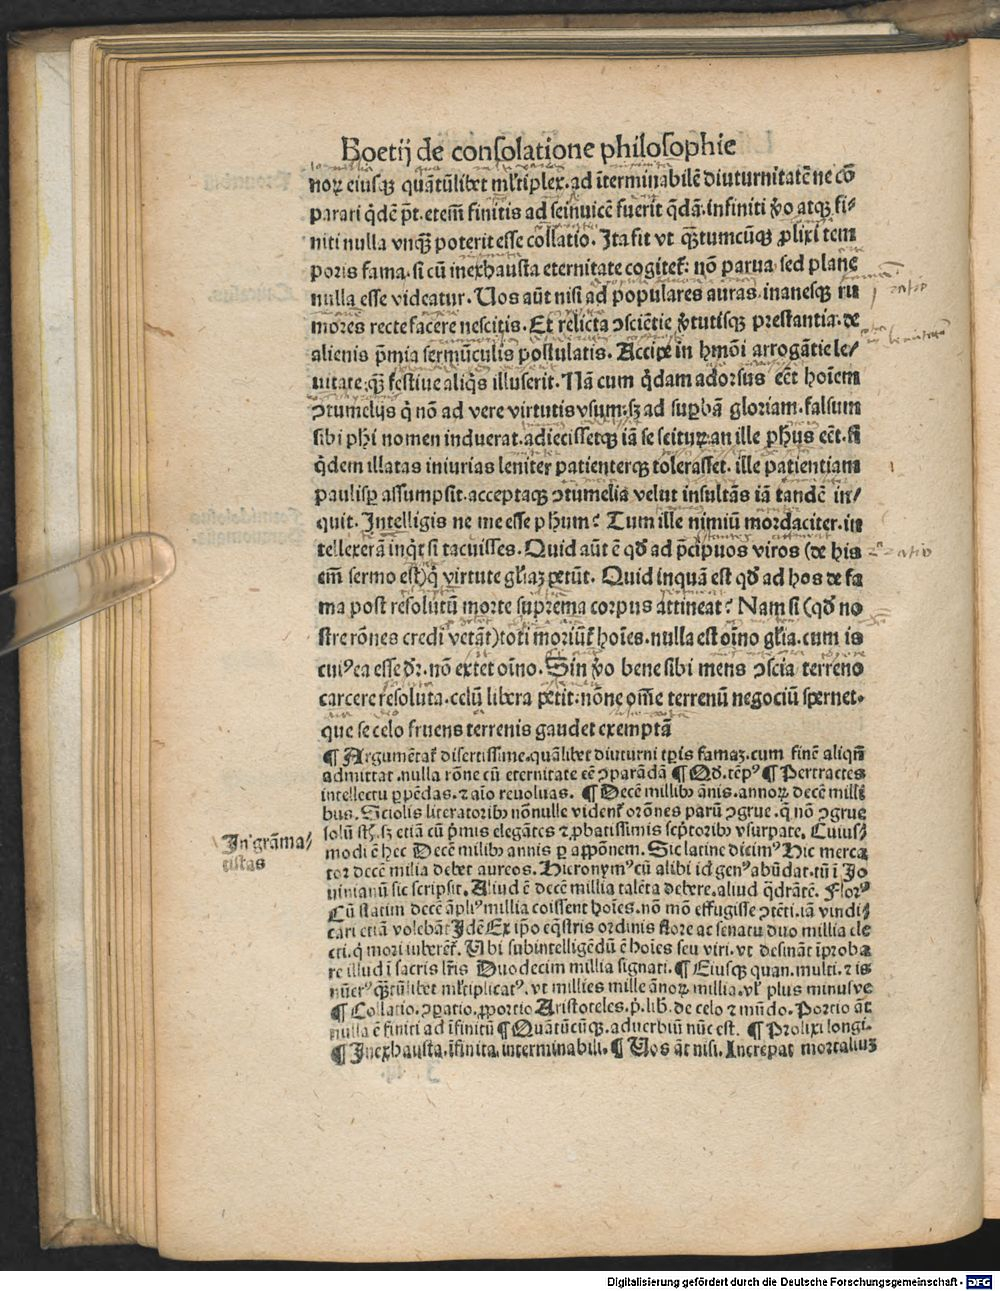 Boetij de consolatione philosophie
noꝝ eiusqꝫ quãtũlibet ml'tiplex. ad ĩterminabilẽ diuturnitatẽ ne cõ
parari q̃dẽ p̃t. etem̃ finitis ad seinuicẽ fuerit q̃dã. infiniti ꝟo atqꝫ fi-
niti nulla vnqꝫ̃ poterit esse collatio. Ita fit vt qꝫ̃tumcũqꝫ ꝓlixi tem
poris fama. si cũ inexhausta eternitate cogitet᷑: nõ parua sed plane
nulla esse videatur. Uos aũt nisi ad populares auras. inanesqꝫ ru
mores recte facere nescitis. Et relicta ↄsciẽtie ꝟtutisqꝫ prestantia. de
alienis p̃mia sermũculis postulatis. Accipe in hmõi arrogãtie le/
uitate. qꝫ̃ festiue aliq̃s illuserit. Nã cum q̃dam adorsus eẽt hoĩem
ↄtumelijs q̃ nõ ad vere virtutis vsum. sꝫ ad suꝑbã gloriam. falsum
sibi phi nomen induerat. adiecissetqꝫ iã se sciturꝫ. an ille phus eẽt. si
q̃dem illatas iniurias leniter patienterqꝫ tolerasset. ille patientiam
paulisꝑ assumpsit. acceptaqꝫ ↄtumelia velut insultãs iã tandẽ in/
quit. Intelligis ne me esse phum? Tum ille nimiũ mordaciter. in
tellexerã inq̃t si tacuisses. Quid aũt ẽ qđ ad p̃cipuos viros (de his
em̃ sermo est) q̃ virtute gl'iaꝫ petũt. Quid inquã est qđ ad hos de fa
ma post resolutũ morte suprema corpus attineat? Nam si (qđ no
stre rõnes credi vetãt) toti moriũt᷑ hoĩes. nulla est oĩno gl'ia. cum is
cuiꝰ ea esse dr̃. nõ extet oĩno. Sin ꝟo bene sibi mens ↄscia terreno
carcere resoluta. celũ libera petit. nõne om̃e terrenũ negociũ spernet.
que se celo fruens terrenis gaudet exemptã
¶ Argumẽtat᷑ disertissime. quãlibet diuturni tp̃is famaꝫ. cum finẽ aliqm̃
admittat. nulla rõne cũ eternitate eẽ ↄparãdã ¶ Qđ. tẽpꝰ ¶ Pertractes
intellectu ꝑpẽdas. ⁊ aĩo reuoluas. ¶ Decẽ millibꝰ ãnis. annoꝝ decẽ milli
bus. Sciolis literatoribꝰ nõnulle vident᷑ orõnes parũ ↄgrue. q̃ nõ ↄgrue
solũ st̃. sꝫ etiã cũ p̃mis elegãtes ⁊ ꝓbatissimis scp̃toribꝰ vsurpate. Cuius/
modi ẽ hec Decẽ milibꝰ annis ꝑ appõnem. Sic latine dicimꝰ Hic merca
tor decẽ milia debet aureos. Hieronymꝰ cũ alibi id genꝰ abũdat. tũ ĩ Jo
uinianũ sic scripsit. Aliud ẽ decẽ millia talẽta debere. aliud q̃drãtẽ. Florꝰ
Cũ statim decẽ ãpliꝰ millia coissent hoĩes. nõ mõ effugisse ↄtẽti. iã vindi/
cari etiã volebãt Idẽ Ex ip̃o eq̃stris ordinis flore ac senatu duo millia ele
cti. q̃ mori iuberẽt᷑. Ubi subintelligẽdũ ẽ hoĩes seu viri. vt desinãt ĩproba
re illud ĩ sacris lr̃is Duodecim millia signati. ¶ Eiusqꝫ quan. multi. ⁊ is
nũerꝰ qꝫ̃tũlibet ml'tiplicatꝰ. vt millies mille ãnoꝝ millia. vl' plus minusve
¶ Collatio. ↄꝑatio. ꝓportio Aristoteles. p̃. lib̃. de celo ⁊ mũdo. Portio ãt
nulla ẽ finiti ad ĩfinitũ ¶ Quãtũcũqꝫ. aduerbiũ nũc est. ¶ Prolixi longi.
¶ Inexhausta. ĩfinita. interminabili. ¶ Uos ãt nisi. Increpat mortaliuꝫ
In grãma/
tistas
Digitalisierung gefördert durch die Deutsche Forschungsgemeinschaft - DFG